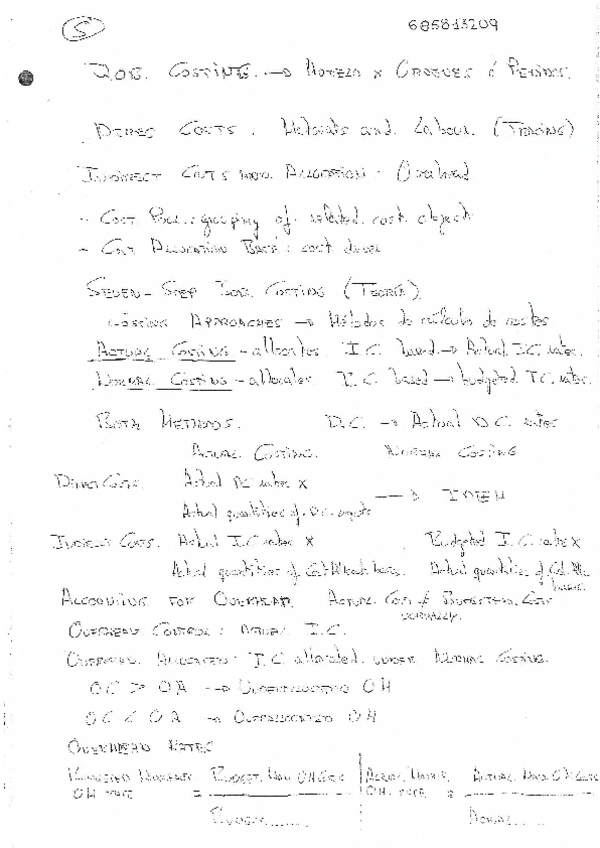 5
685813209
JOB. COSTING. → x ORDENES
DIREC COSTS. Materials and Labour. (TEACING)
INDIRECT COSTS MANU. ALLOCATION - Overhead
- COST POOL: grouping of related cost objects
- COST ALLOCATION BASE: cost driver
SEVEN-STEP JOB COSTING (TEORÍA)
COSTING APPROACHES → Métodos de cálculo de costes
ACTUAL COSTING - allocates I.C. based → Actual I.C. rates.
NORMAL COSTING - allocates I.C. based → budgeted I.C. rates.
BOTH METHODS. D.C. → Actual D.C. rates
ACTUAL COSTING. NORMAL COSTING
DIRECT COSTS. Actual DC rates x
Actual quantities of D.C. inputs → IDEM
INDIRECT COSTS. Actual I.C rates x Budgeted I.C. rates x
Actual quantities of Cost Allocat. bases. Actual quantities of Cost. All. bases.
ACCOUNTING FOR OVERHEAD. ACTUAL COST ≠ BUDGETED COST
NORMALLY.
OVERHEAD CONTROL: ACTUAL I.C.
OVERHEAD ALLOCATED: I.C allocated UNDER NORMAL COSTING.
OC > OA → UNDERALLOCATED OH
OC < OA → OVERALLOCATED OH
OVERHEAD RATES
BUDGETED MANUFACT. OH RATE = BUDGET. MANU OH COSTS
BUDGET.......
ACTUAL MANUF. OH. RATE = ACTUAL MANU OH COSTS
ACTUAL......